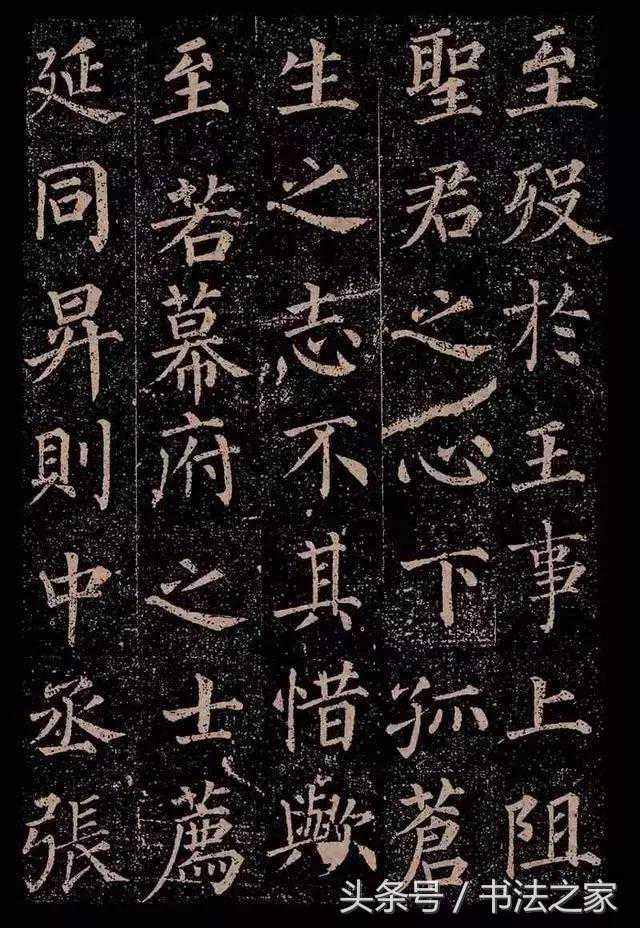 至殁於王事上阻
聖君之心下孤蒼
生之志不其惜歟
至若幕府之士薦
延同昇則中丞張
头条号／书法之家